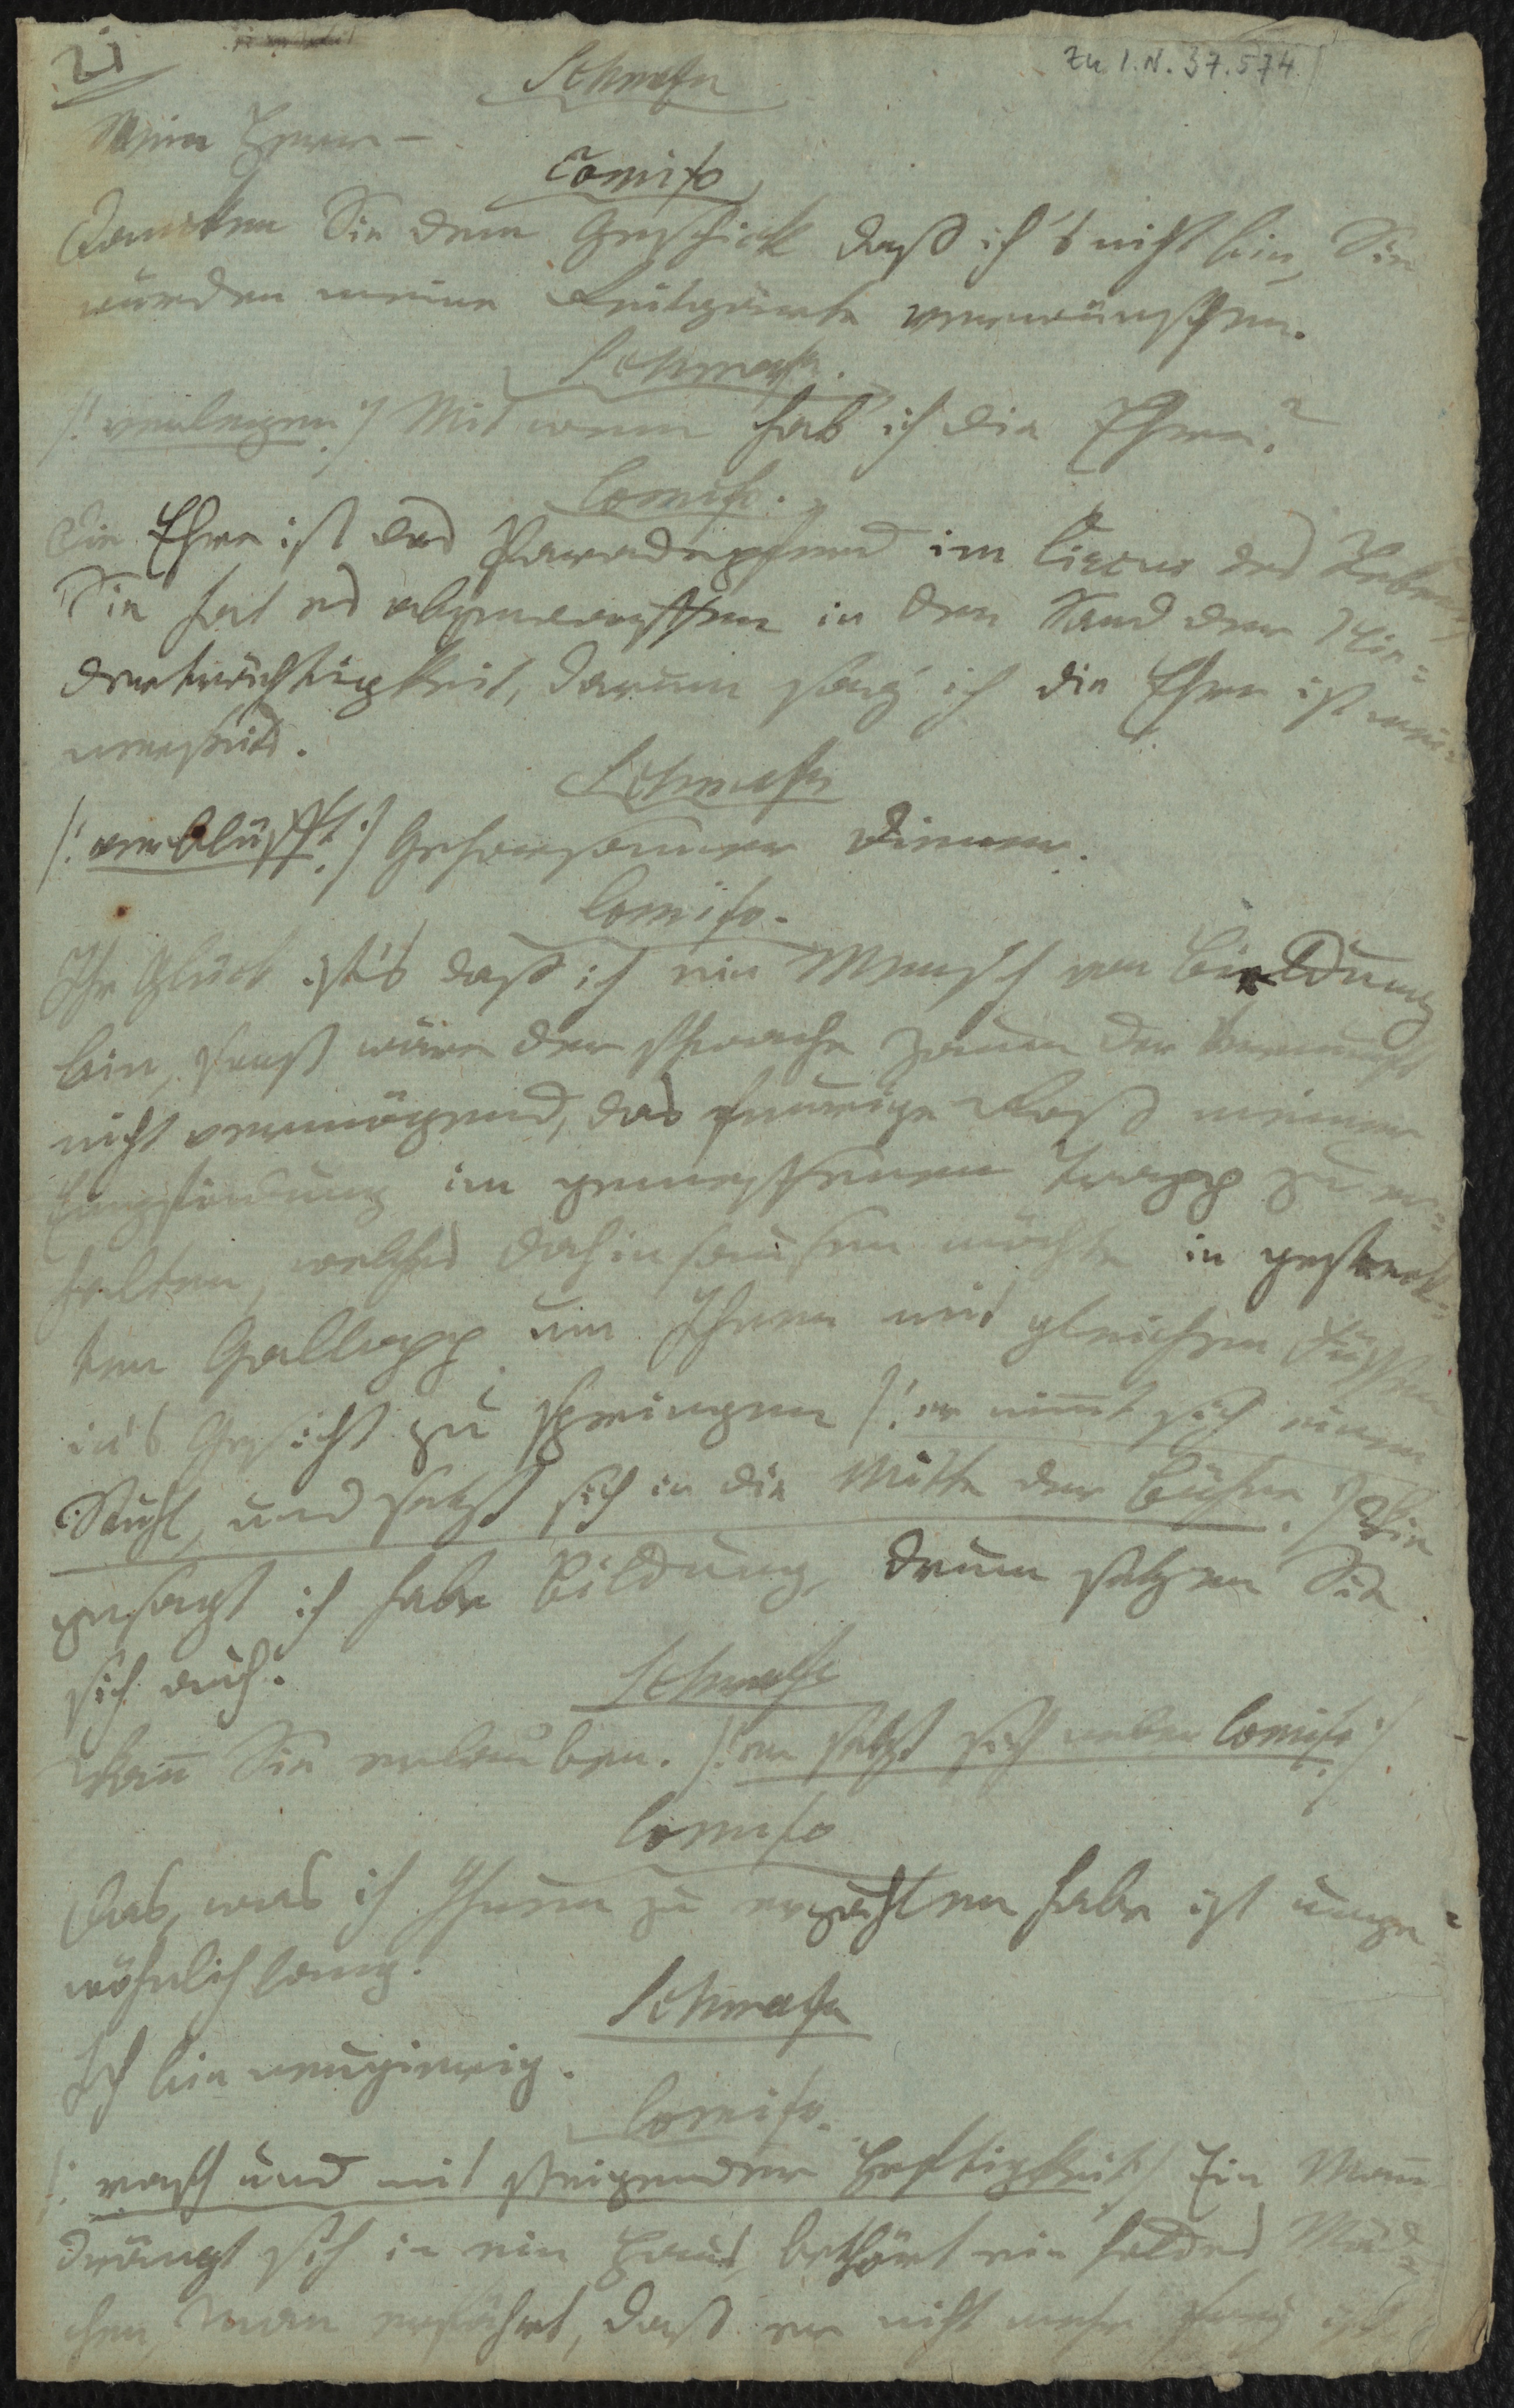 21
zu I.N. 37.574
Schnaf
Mein Herr –
Comifo
Danken Sie dem Geschick daß ich's nicht bin, Sie
würden meine Reitgärte verwünschen.
Schnaf.
/: verlegen :/ Mit wem hab' ich die Ehre?
Comifo.
Die Ehre ist das Paradepferd im Circus des Lebens
Sie hat es abgeworffen in den Sand der Nie=
derträchtigkeit, darum sag' ich die Ehre ist
Schnaf
/: verblüfft :/ Gehorsamer Diener.
Comifo.
Ihr Glück ist's daß ich ein Mensch von Bildung
bin, sonst wäre der schwache Zaum der Vernunft
nicht vermögend, das feurige Roß meiner
Empfindung im gemessenen Trapp zu er=
halten, welches dahinsausen möchte in gestreck=
ten Gallopp um Ihnen mit gleichen Füssen
in's Gesicht zu springen /: er nimmt sich einen
Stuhl, und setzt sich in die Mitte der Bühne :/ Wie
gesagt ich habe Bildung, drum setzen Sie
sich auch.
Schnaf
Wenn Sie erlauben. /: er setzt sich neben Comifo :/
Comifo
Das, was ich Ihnen zu erzählen habe ist unge=
wöhnlich lang.
Schnaf
Ich bin neugierig.
Comifo.
/: rasch und mit steigender Heftigkeit :/ Ein Mann
drängt sich in ein Haus, bethört ein holdes Mäd=
chen, man erfährt, daß er nicht mehr ist